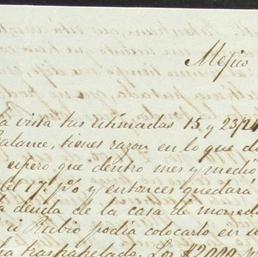 Mejico
a vista tus estimadas 15 y 23/24
Balance, tienes razon en lo que d
espero que dentro mes y medio
del 17 pº y entonces quedará
a deuda de la casa de moned
Rubio podia colocarlo en
trashapelado. Los $2000